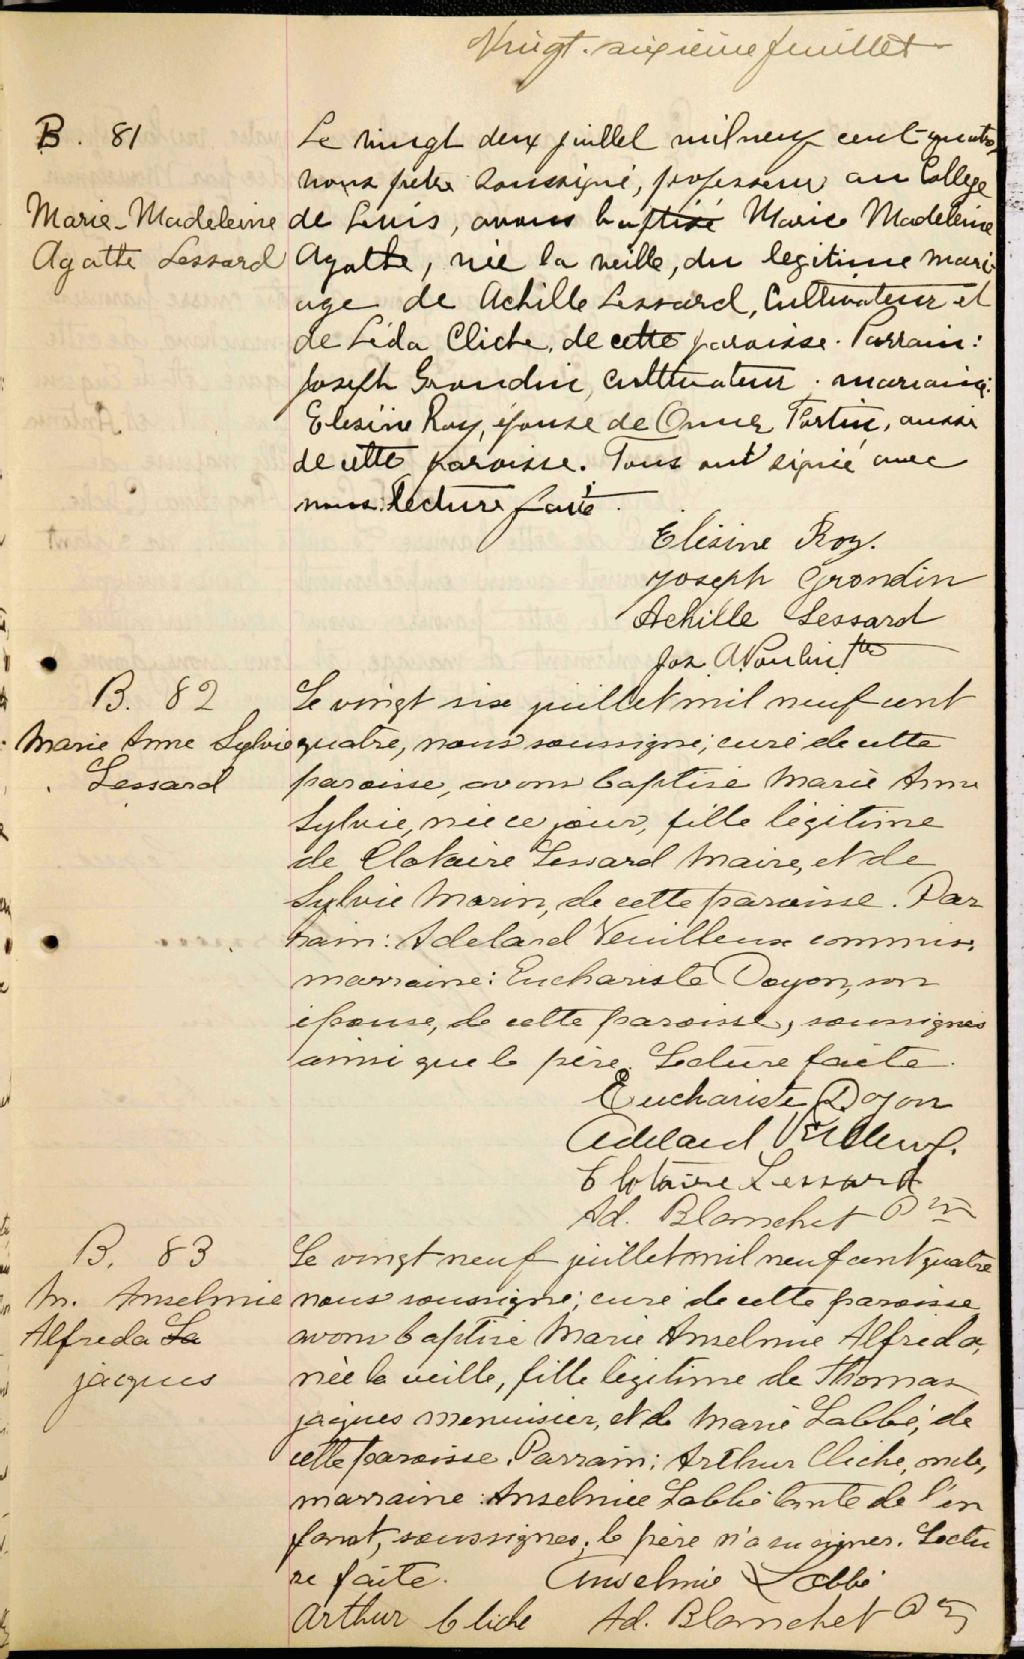 Vingt-sixième feuillet
B. 81
Marie-Madeleine
Agathe Lessard
Le vingt deux juillet mil neuf cent-quatre,
nous prêtre soussigné, professeur au College
de Levis, avons baptisé Marie Madeleine
Agathe, née la veille, du legitime mari-
age de Achille Lessard, Cultivateur et
de Léda Cliche, de cette paroisse. Parrain:
Joseph Grondin, cultivateur. marraine:
Elesine Roy, épouse de Omer Fortin, aussi
de cette paroisse. Tous ont signé avec
nous. lecture faite.
Elesine Roy.
Joseph Grondin
Achille Lessard
Jos A Poulin Ptre
B. 82
Marie Anne Sylvie
Lessard
Le vingt six juillet mil neuf cent
quatre, nous soussigné, curé de cette
paroisse, avons baptisé Marie Anne
Sylvie, née ce jour, fille légitime
de Clotaire Lessard Maire, et de
Sylvie Morin, de cette paroisse. Par
rain: Adelard Veuilleux commis,
marraine: Euchariste Doyon, son
épouse, de cette paroisse, soussignés
ainsi que le père. Lecture faite.
Euchariste Doyon
Adelard Veilleux.
Clotaire Lessard
Ad. Blanchet Ptre
B. 83
M. Anselmie
Alfreda La
jacques
Le vingt neuf juillet mil neuf cent quatre
nous soussigné, curé de cette paroisse
avons baptisé Marie Anselmie Alfreda,
née la veille, fille légitime de Thomas
jacques menuisier, et de Marie Labbé, de
cette paroisse. Parrain: Arthur Cliche, oncle,
marraine: Anselmie Labbé tante de l'en
fant, soussignés, le père n'a su signer. Lectu
re faite. Anselmie Labbé
Arthur Cliche Ad. Blanchet Ptre